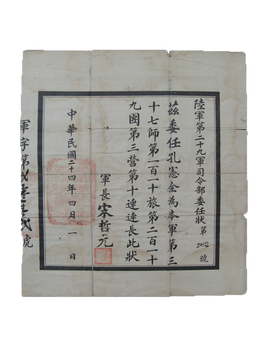 陸軍第二十九軍司令部委任狀第
茲委任孔憲全為本軍第三
十七師第一百一十旅第二百一十
九團第三營第十連連長此狀
軍長宋哲元
中華民國二十四年四月一日
軍字第 號